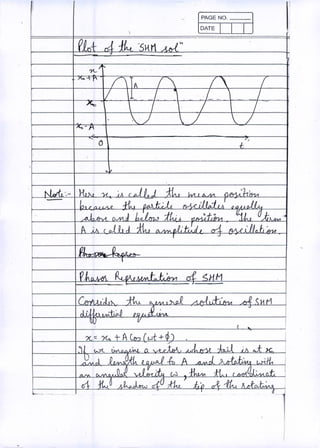 PAGE NO.
DATE
Plot of the "SHM solⁿ"
x
x₀+A
A
x₀
x₀-A
0
t
Note:- Here x₀ is called the mean position
because the particle oscillates equally
above and below this position. The term
A is called the amplitude of oscillation.
Phasor Repres
Phasor Representation of SHM
Consider the general solution of SHM
differential equation
x = x₀ + A Cos(ωt+ϕ)
If we imagine a vector whose tail is at x₀
and length equal to A and rotating with
an angular velocity ω, then the coordinate
of the shadow of the tip of the rotating